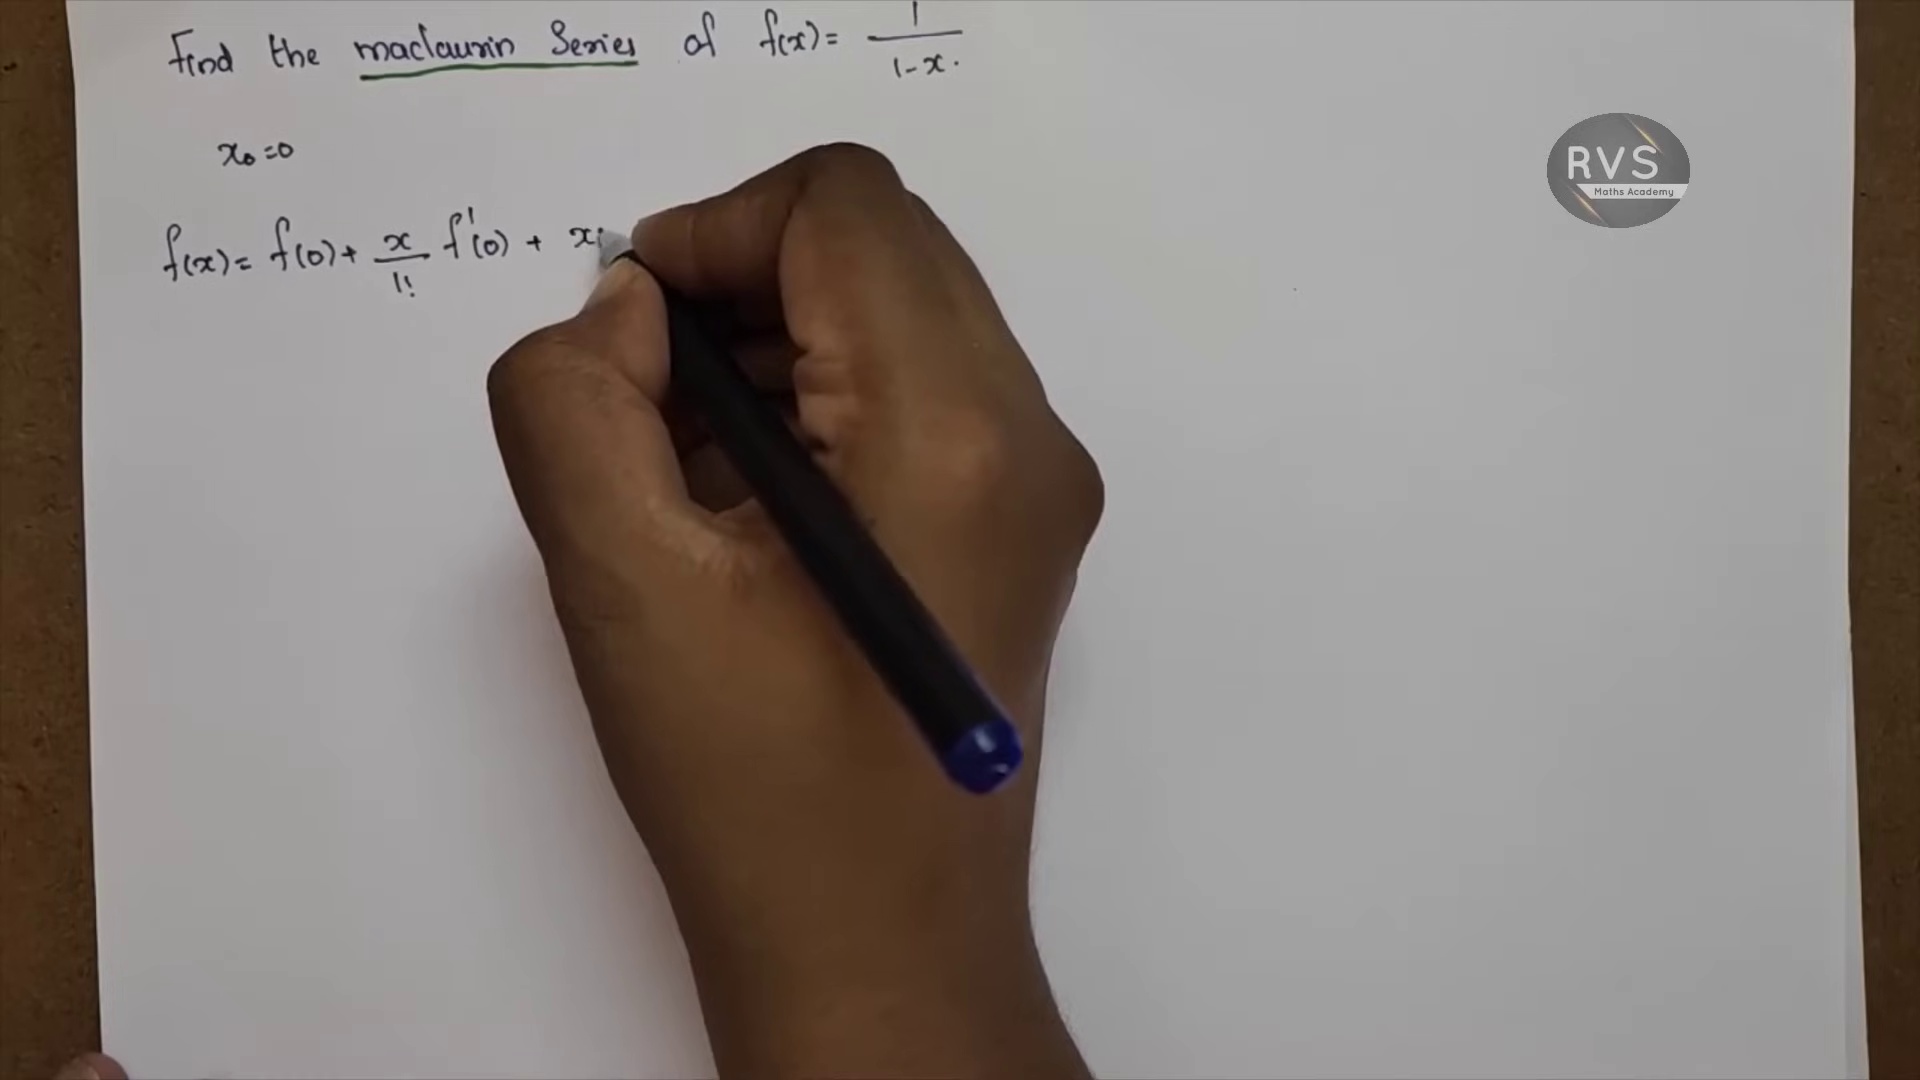 Find the maclaurin Series of f(x)= 1/1-x.
x₀=0
f(x)= f(0)+ x/1! f'(0) + x
RVS
Maths Academy